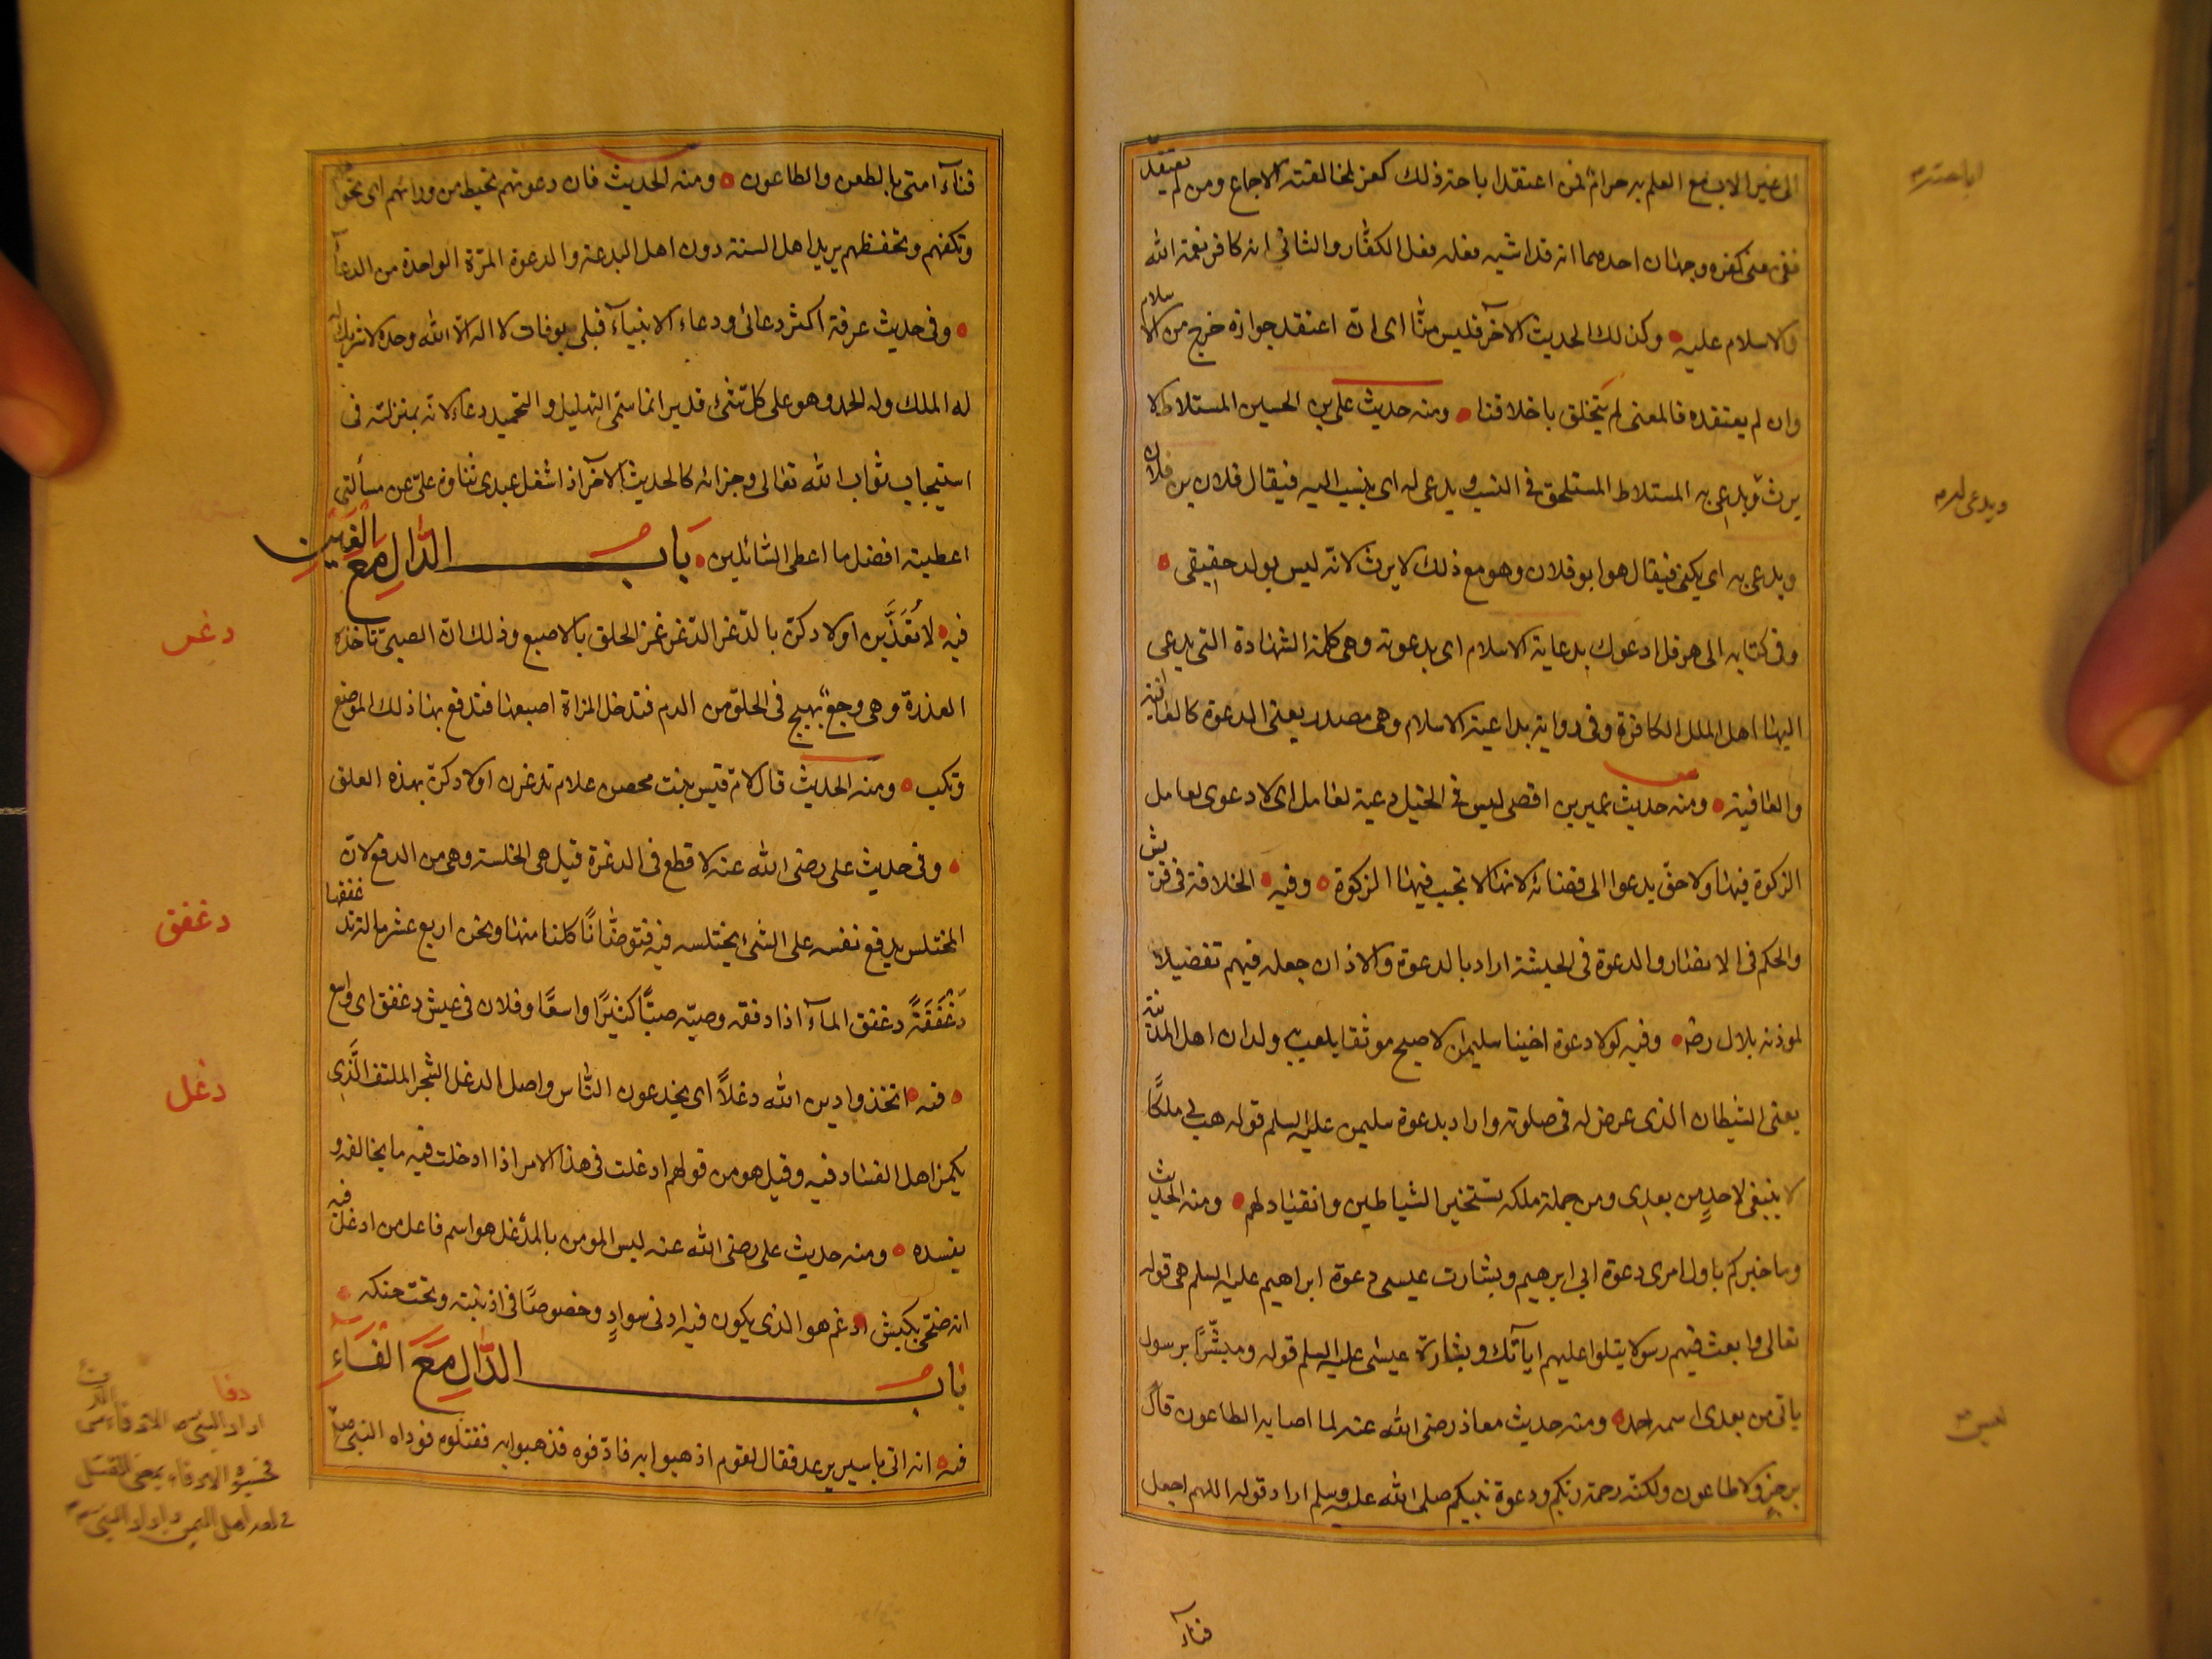 الى غير الاب مع العلم به حرام فمن اعتقد اباحة ذلك كفر لمخالفته الاجماع ومن لم يعتقد
ففى معنى كفره وجهان احدهما انه قد اشبه فعله فعل الكفار والثانى انه كافر نعمة الله
والاسلام عليه وكذلك الحديث الآخر فليس منّا اى ان اعتقد جوازه خرج من الاسلام
وان لم يعتقده فالمعنى لم يتخلق باخلاقنا ومنه حديث على بن الحسين المستلاط لا
يرث ويدعى به المستلاط المستلحق فى النسب ويدعى له اى ينسب اليه فيقال فلان بن فلان
ويدعى به اى يكنى فيقال هو ابو فلان وهو مع ذلك لا يرث لانّه ليس بولد حقيقى
وفى كتابه الى هرقل ادعوك بدعاية الاسلام اى بدعوته وهى كلمة الشهادة التى يدعى
اليها اهل الملل الكافرة وفى رواية بداعية الاسلام وهى مصدر بمعنى الدعوة كالعافية
والعاقبة ومنه حديث عمير بن افصى ليس فى الخيل داعية لعامل اى لا دعوى لعامل
الزكوة فيها ولا حق يدعوا الى قضائه لانها لا تجب فيها الزكوة وفيه الخلافة فى قريش
والحكم فى الانصار والدعوة فى الحبشة اراد بالدعوة والاذان جعله فيهم تفضيلا
لموذنه بلال رضه وفيه لولا دعوة اخينا سليمان لاصبح موثقا يلعب به ولدان اهل المدينة
يعنى الشيطان الذى عرض له فى صلوته واراد بدعوة سليمن عليه السلم قوله هب لى ملكًا
لا ينبغى لاحدٍ من بعدى ومن جملة ملكه تسخير الشياطين وانقيادهم ومنه الحديث
وساخبركم باول امرى دعوة ابى ابرهيم وبشارت عيسى دعوة ابراهيم عليه السلم هى قوله
تعالى وابعث فيهم رسولا يتلوا عليهم اياتك وبشارة عيسى عليه السلم قوله ومبشّرًا برسول
ياتى من بعدى اسمه احمد ومنه حديث معاذ رضى الله عنه لما اصابه الطاعون قال
برجز ولا طاعون ولكنه رحمة ربكم ودعوة نبيكم صلى الله عليه وسلم اراد قوله اللهم اجعل
فناء
ويدعى له
ليس
فنآء امتى بالطعن والطاعون ومنه الحديث فان دعوتهم تحيط من ورائهم اى تحوطهم
وتكنفهم وتحفظهم يريد اهل السنة دون اهل البدعة والدعوة المرّة الواحدة من الدعآء
وفى حديث عرفة أكثر دعائى ودعاء الانبيآء قبلى بعرفات لا اله الّا الله وحده لا شريك له
له الملك وله الحمد وهو على كل شئ قدير انما سمّى التهليل والتحميد دعاء لانه بمنزلته فى
استيجاب ثواب الله تعالى وجزائه كالحديث الآخر اذ اشغل عبدى ثناؤه علىّ عن مسألتى
اعطيته افضل ما اعطى السّائلين بَاب الدَّالِ مَعَ الْغَيْنِ
فيه لا تُعَذِّبن اولادكنّ بالدّغر الدّغر غمز الحلق بالاصبع وذلك انّ الصبىّ تاخذه
العذرة وهى وجع يهيج فى الحلق من الدم فتدخل المراة اصبعها فتدفع بها ذلك الموضع
وتكبس ومنه الحديث قال لامّ قيس بنت محصن علام تدغرن اولادكنّ بهذه العلق
وفى حديث على رضى الله عنه لا قطع فى الدغرة قيل هى الخلسة وهى من الدفع لانّ
المختلس يدفع نفسه على الشئ ليختلسه فيه فتوضّانًا كلنا منها ونحن اربع عشر مائة ندغفقها
دَغْفَقَةً دغفق المآء اذا دفقه وصبّه صبًّا كثيرًا واسعًا وفلان فى عيش دغفق اى واسع
فيه اتخذوا دين الله دغلًا اى يخدعون النّاس واصل الدغل الشجر الملتف الَّذِى
يكمن اهل الفساد فيه وقيل هو من قولهم ادغلت فى هذا الامر اذا ادخلت فيه ما يخالفه و
يفسده ومنه حديث على رضى الله عنه ليس المومن بالمدغل هو اسم فاعل من ادغل فيه
انه ضحّى بكبش ادغم هو الذى يكون فيه ادنى سوادٍ وخصوصًا فى ارنبته وتحت حنكه
بَاب الدَّالِ مَعَ الْفَآءِ
فيه انه اتى باسير يرعد فقال لقوم اذهبوا به فادفوه فذهبوا به فقتلوه فوداه النبى صلّى
دغر
دغفق
دغل
دفا